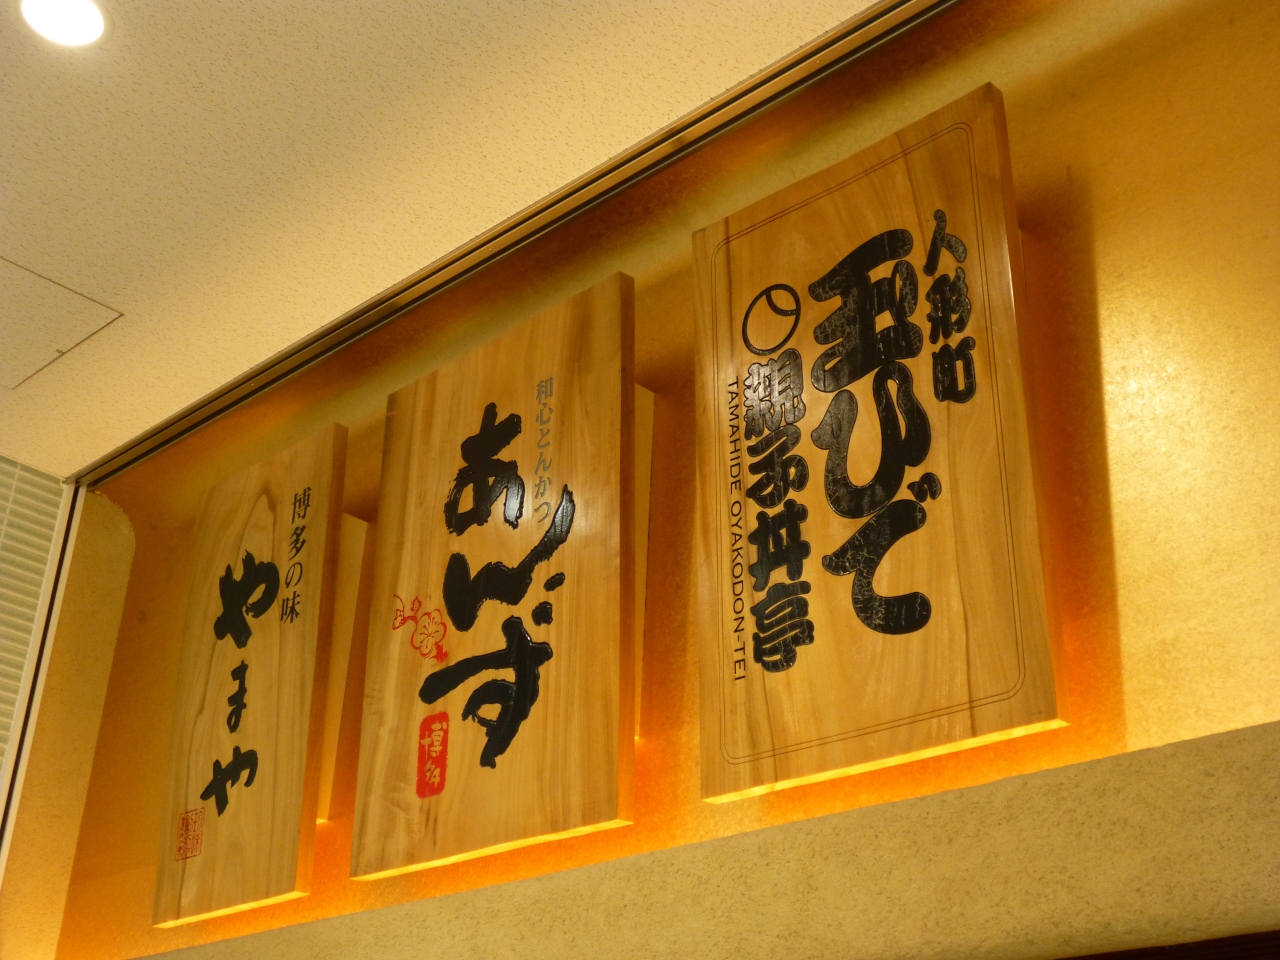 人形町
玉ひで
親子丼亭
TAMAHIDE OYAKODON-TEI
和心とんかつ
あんず
博多
博多の味
やまや